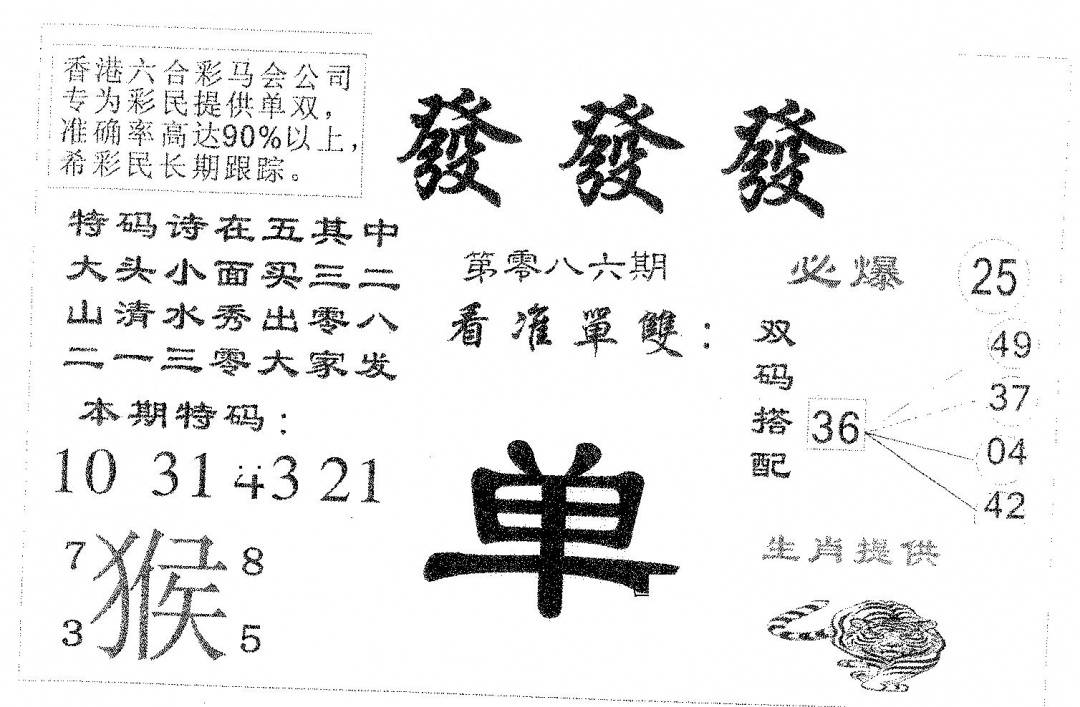 香港六合彩马会公司
专为彩民提供单双，
准确率高达90%以上，
希彩民长期跟踪。
發發發
特码诗在五其中
大头小面买三二
山清水秀出零八
二一三零大家发
本期特码：
10 31 43 21
7 猴 8
3 5
第零八六期
看准單雙：
单
必爆 25
双码搭配
36
49
37
04
42
生肖提供